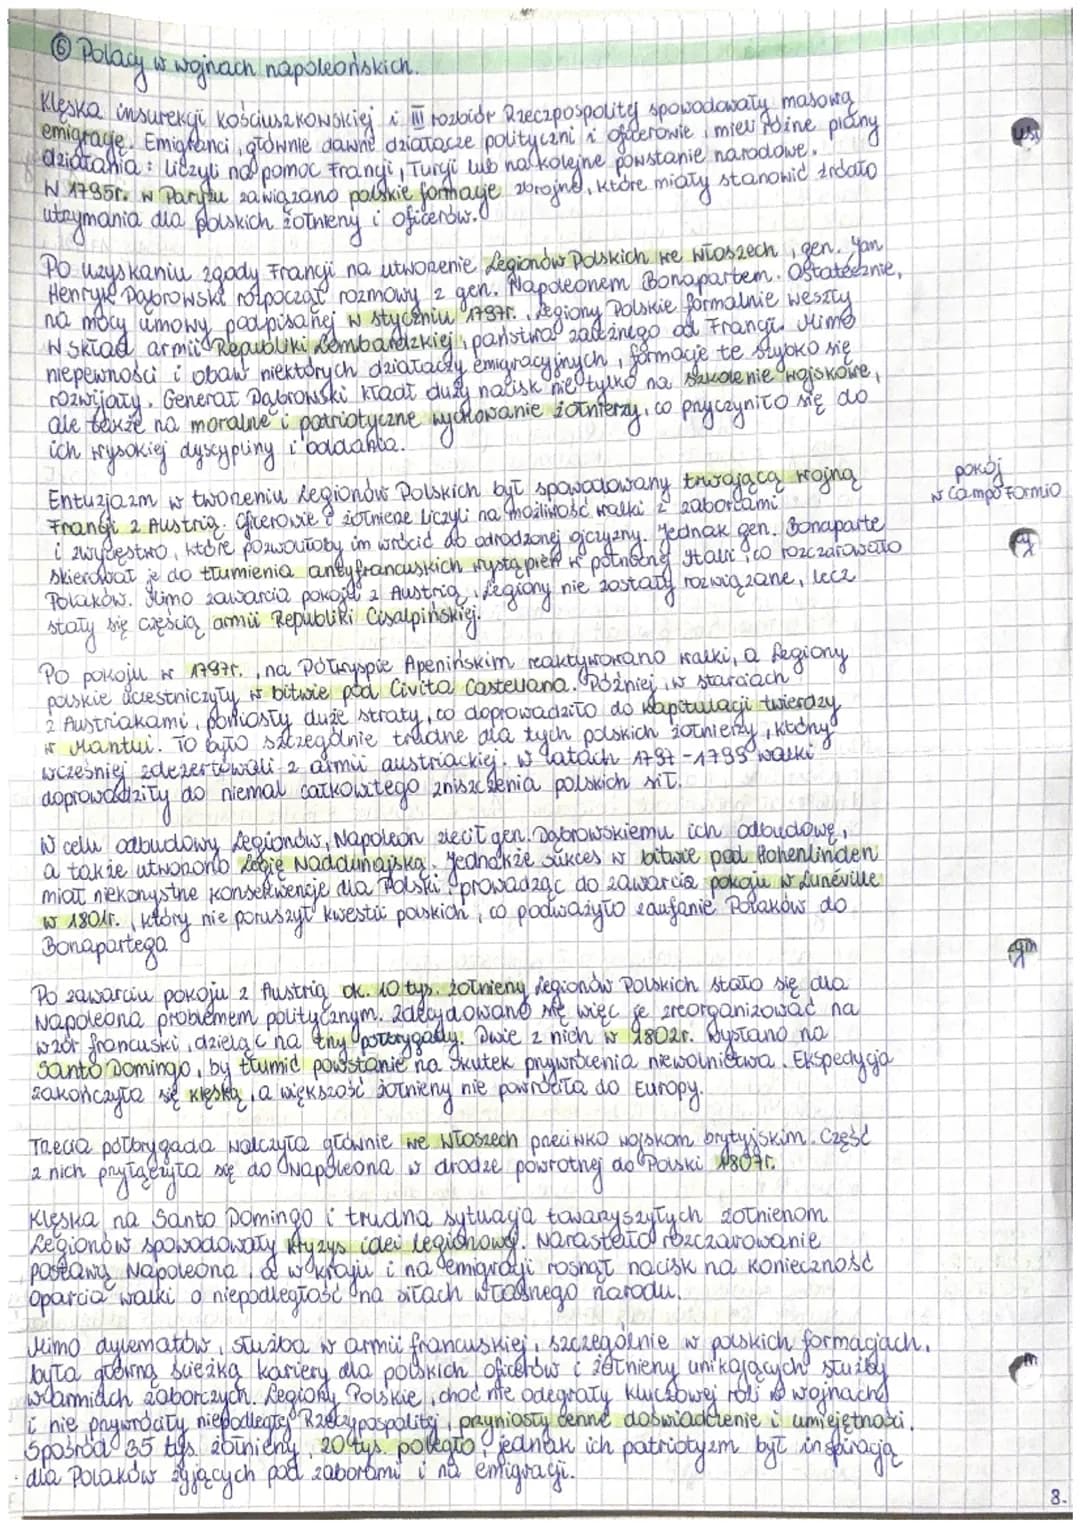 ⑥ Polacy w wojnach napoleońskich.
Klęska insurekcji kościuszkowskiej i III rozbiór Rzeczpospolitej spowodowały masową
emigrację. Emigranci, głównie dawni działacze polityczni i oficerowie, mieli różne plany
działania: liczyli na pomoc Francji, Turcji lub na kolejne powstanie narodowe.
W 1795r. w Paryżu zawiązano polskie formacje zbrojne, które miały stanowić źródło
utrzymania dla polskich żołnierzy i oficerów.
Po uzyskaniu zgody Francji na utworzenie Legionów Polskich we Włoszech, gen. Jan
Henryk Dąbrowski rozpoczął rozmowy z gen. Napoleonem Bonapartem. Ostatecznie,
na mocy umowy podpisanej w styczniu 1797r., Legiony Polskie formalnie weszły
w skład armii Republiki Lombardzkiej, państwa zależnego od Francji. Mimo
niepewności i obaw niektórych działaczy emigracyjnych, formacje te szybko się
rozwijały. Generał Dąbrowski kładł duży nacisk nie tylko na szkolenie wojskowe,
ale także na moralne i patriotyczne wychowanie żołnierzy, co przyczyniło się do
ich wysokiej dyscypliny i oddania.
Entuzjazm w tworzeniu Legionów Polskich był spowodowany trwającą wojną
Francji z Austrią. Oficerowie i żołnierze liczyli na możliwość walki z zaborcami
pokój
w Campo Formio
i zwycięstwo, które pozwoliłoby im wrócić do odrodzonej ojczyzny. Jednak gen. Bonaparte
skierował je do tłumienia antyfrancuskich wystąpień w północnej Italii, co rozczarowało
Polaków. Mimo zawarcia pokoju z Austrią, Legiony nie zostały rozwiązane, lecz
stały się częścią armii Republiki Cisalpińskiej.
Po pokoju w 1797r., na Półwyspie Apenińskim reaktywowano walki, a Legiony
polskie uczestniczyły w bitwie pod Civita Castellana. Później, w starciach
z Austriakami, poniosły duże straty, co doprowadziło do kapitulacji twierdzy
w Mantui. To było szczególnie trudne dla tych polskich żołnierzy, którzy
wcześniej zdezerterowali z armii austriackiej. W latach 1797-1799 walki
doprowadziły do niemal całkowitego zniszczenia polskich sił.
W celu odbudowy Legionów, Napoleon zlecił gen. Dąbrowskiemu ich odbudowę,
a także utworzono Legię Naddunajską. Jednakże sukces w bitwie pod Hohenlinden
miał niekorzystne konsekwencje dla Polski, prowadząc do zawarcia pokoju w Lunéville
w 1801r., który nie poruszył kwestii polskich, co podważyło zaufanie Polaków do
Bonapartego
Po zawarciu pokoju z Austrią ok. 10 tys. żołnierzy Legionów Polskich stało się dla
Napoleona problemem politycznym. Zdecydowano się więc je zreorganizować na
wzór francuski, dzieląc na trzy półbrygady. Dwie z nich w 1802r. wysłano na
Santo Domingo, by tłumić powstanie na skutek przywrócenia niewolnictwa. Ekspedycja
zakończyła się klęską, a większość żołnierzy nie powróciła do Europy.
Trzecia półbrygada walczyła głównie we Włoszech przeciwko wojskom brytyjskim. Część
z nich przyłączyła się do Napoleona w drodze powrotnej do Polski 1807r.
Klęska na Santo Domingo i trudna sytuacja towarzyszyłych żołnierzom
Legionów spowodowały kryzys idei legionowej. Narastało rozczarowanie
postawą Napoleona, a w kraju i na emigracji rosnął nacisk na konieczność
oparcia walki o niepodległość na siłach własnego narodu.
Mimo dylematów, służba w armii francuskiej, szczególnie w polskich formacjach,
była główną ścieżką kariery dla polskich oficerów i żołnierzy unikających służby
w armiach zaborczych. Legiony Polskie, choć nie odegrały kluczowej roli w wojnach
i nie przywróciły niepodległej Rzeczypospolitej, przyniosły cenne doświadczenie i umiejętności.
Spośród 35 tys. żołnierzy, 20 tys. poległo, jednak ich patriotyzm był inspiracją
dla Polaków żyjących pod zaborami i na emigracji.
8.